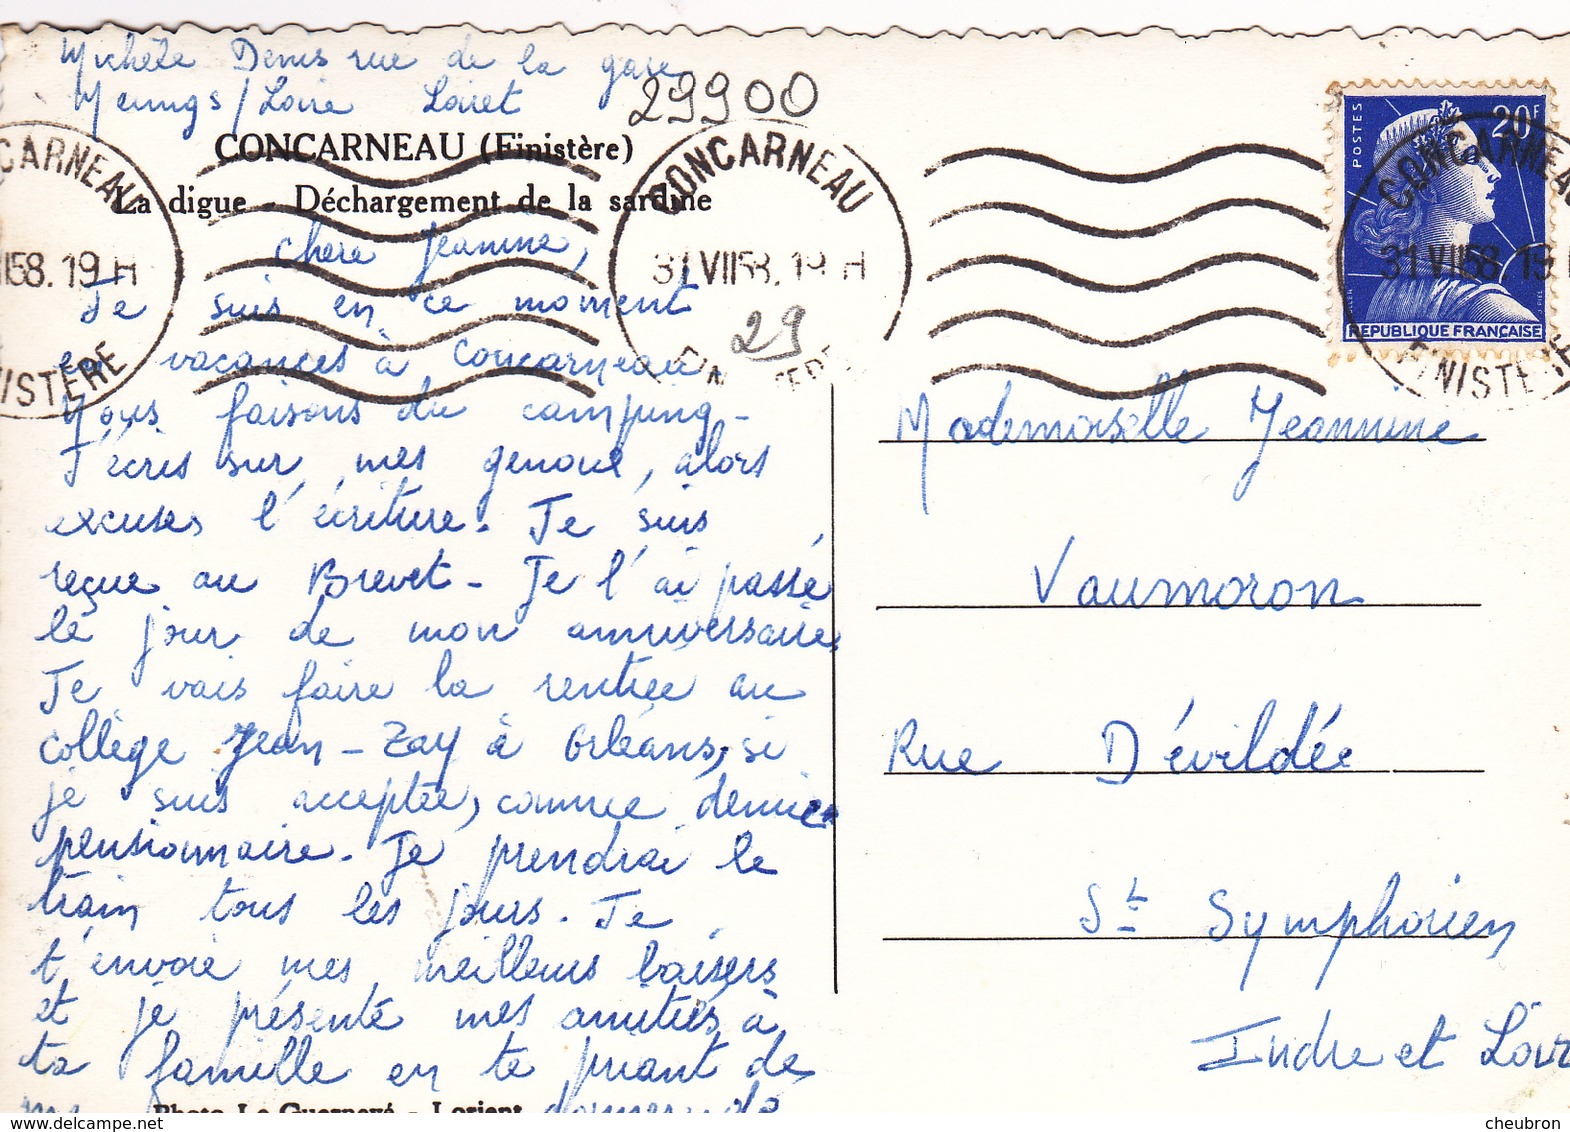 Michèle Denis rue de la gare
Meungs/Loire Loiret
29900
CONCARNEAU (Finistère)
La digue - Déchargement de la sardine
CONCARNEAU
31 VII 58. 19 H
FINISTERE
29
POSTES
20F
REPUBLIQUE FRANÇAISE
Chère Jeannine,
Je suis en ce moment
en vacances à Concarneau
Nous faisons du camping -
J'écris sur mes genoux, alors
excuses l'écriture. Je suis
reçue au Brevet - Je l'ai passé
le jour de mon anniversaire,
Je vais faire la rentrée au
collège Jean-Zay à Orléans, si
je suis acceptée, comme demie
pensionnaire. Je prendrai le
train tous les jours. Je
t'envoie mes meilleurs baisers
et je présente mes amitiés à
ta famille en te priant de
me donner de
Photo Le Guernevé - Lorient
Mademoiselle Jeannine
Vaumoron
Rue D'évildée
St Symphorien
Indre et Loir
delcampe.net
chuebron